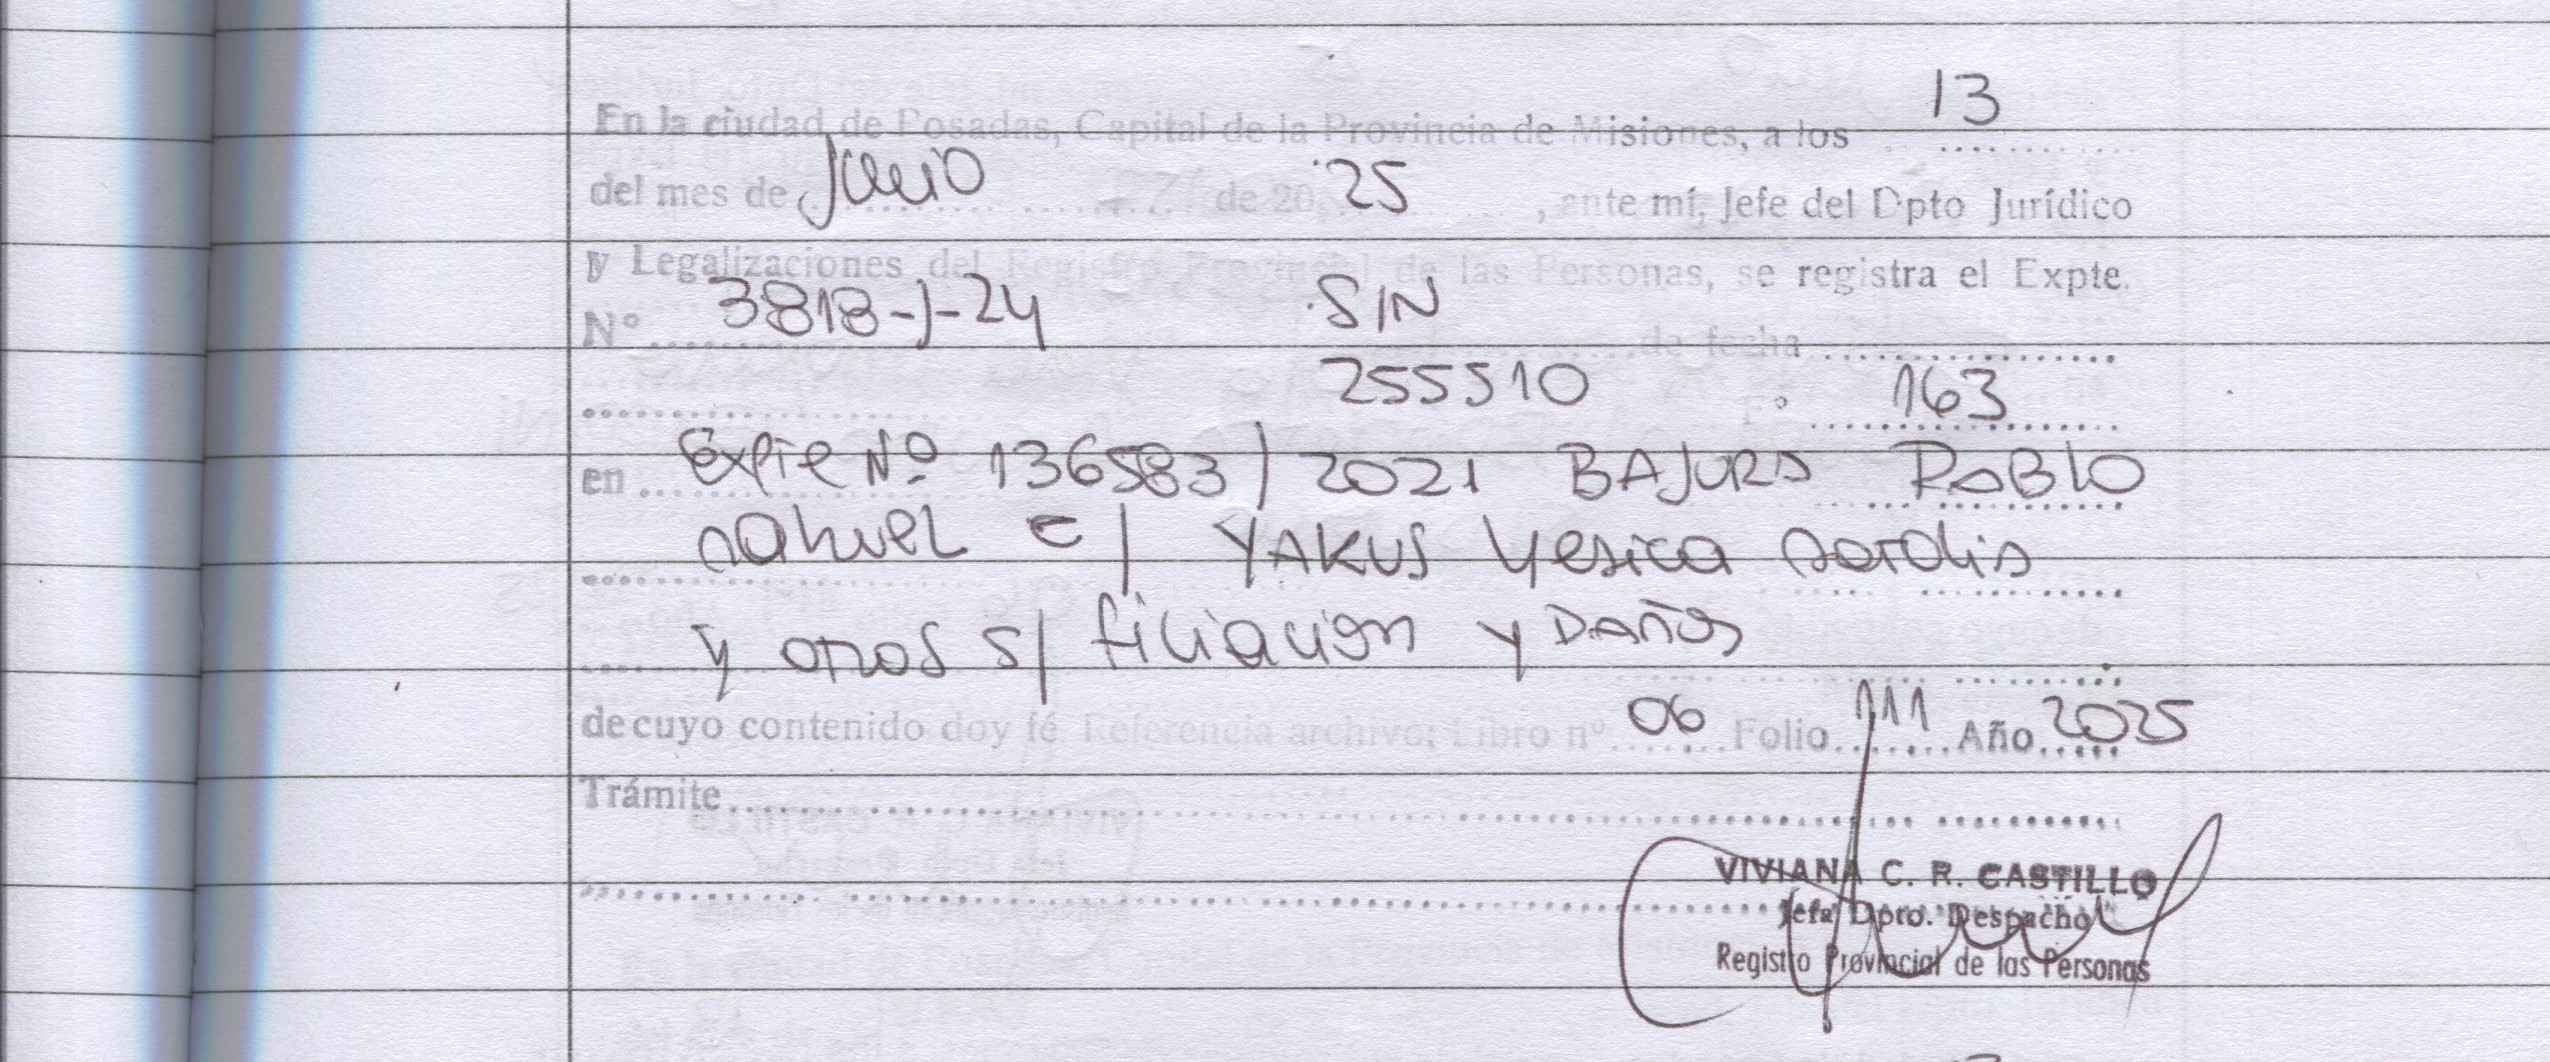 En la ciudad de Posadas, Capital de la Provincia de Misiones, a los 13
del mes de Junio de 20 25, ante mí, Jefe del Dpto Jurídico
y Legalizaciones del Registro Provincial de las Personas, se registra el Expte.
N° 3818-J-24 SIN de fecha
255510 F° 163
en Expte Nº 136583/2021 BAJURA PABLO
nahuel c/ YAKUS Yesica
y otros s/ filiación y DAÑOS
de cuyo contenido doy fé Referencia archivo: Libro nº 06 Folio 111 Año 2025
Trámite
VIVIANA C. R. CASTILLO
Jefa Dpto. Despacho
Registro Provincial de las Personas